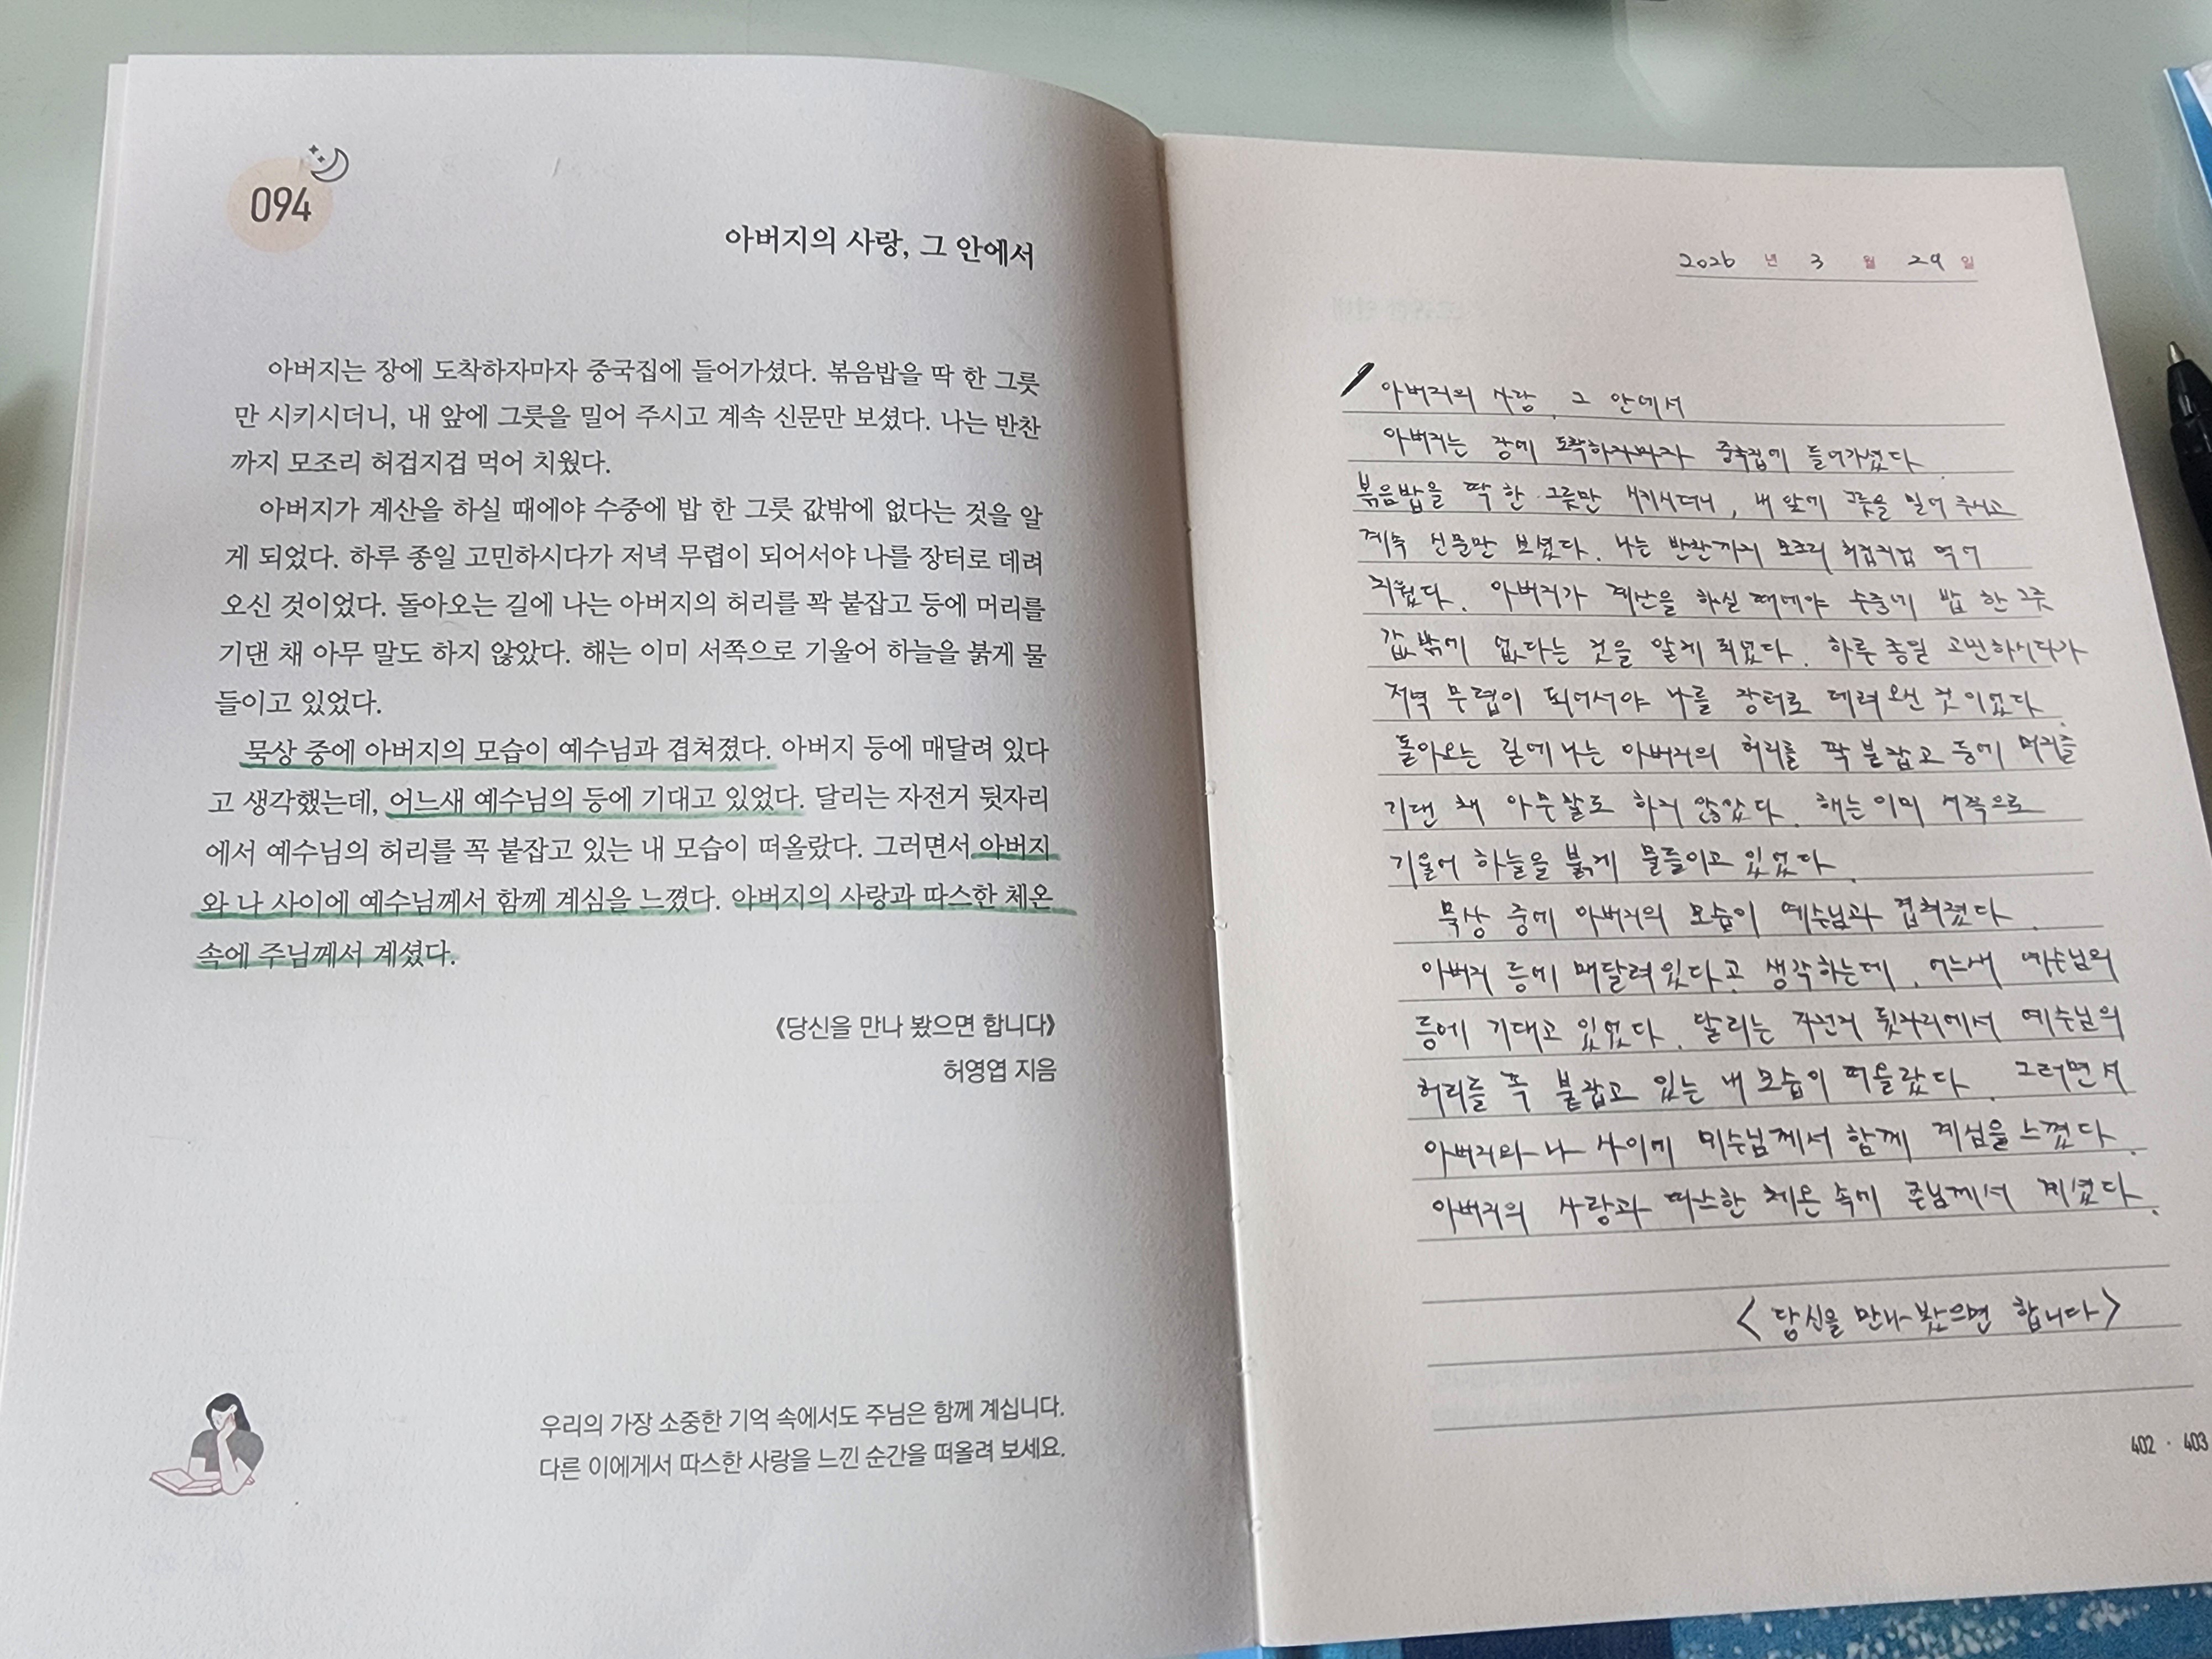 094
아버지의 사랑, 그 안에서
아버지는 장에 도착하자마자 중국집에 들어가셨다. 볶음밥을 딱 한 그릇
만 시키시더니, 내 앞에 그릇을 밀어 주시고 계속 신문만 보셨다. 나는 반찬
까지 모조리 허겁지겁 먹어 치웠다.
아버지가 계산을 하실 때에야 수중에 밥 한 그릇 값밖에 없다는 것을 알
게 되었다. 하루 종일 고민하시다가 저녁 무렵이 되어서야 나를 장터로 데려
오신 것이었다. 돌아오는 길에 나는 아버지의 허리를 꽉 붙잡고 등에 머리를
기댄 채 아무 말도 하지 않았다. 해는 이미 서쪽으로 기울어 하늘을 붉게 물
들이고 있었다.
묵상 중에 아버지의 모습이 예수님과 겹쳐졌다. 아버지 등에 매달려 있다
고 생각했는데, 어느새 예수님의 등에 기대고 있었다. 달리는 자전거 뒷자리
에서 예수님의 허리를 꼭 붙잡고 있는 내 모습이 떠올랐다. 그러면서 아버지
와 나 사이에 예수님께서 함께 계심을 느꼈다. 아버지의 사랑과 따스한 체온
속에 주님께서 계셨다.
《당신을 만나 봤으면 합니다》
허영엽 지음
우리의 가장 소중한 기억 속에서도 주님은 함께 계십니다.
다른 이에게서 따스한 사랑을 느낀 순간을 떠올려 보세요.
2026 년 3 월 29 일
아버지의 사랑, 그 안에서
아버지는 장에 도착하자마자 중국집에 들어가셨다.
볶음밥을 딱 한 그릇만 시키시더니, 내 앞에 그릇을 밀어 주시고
계속 신문만 보셨다. 나는 반찬까지 모조리 허겁지겁 먹어
치웠다. 아버지가 계산을 하실 때에야 수중에 밥 한 그릇
값밖에 없다는 것을 알게 되었다. 하루 종일 고민하시다가
저녁 무렵이 되어서야 나를 장터로 데려 오신 것이었다.
돌아오는 길에 나는 아버지의 허리를 꽉 붙잡고 등에 머리를
기댄 채 아무 말도 하지 않았다. 해는 이미 서쪽으로
기울어 하늘을 붉게 물들이고 있었다.
묵상 중에 아버지의 모습이 예수님과 겹쳐졌다.
아버지 등에 매달려 있다고 생각하는데, 어느새 예수님의
등에 기대고 있었다. 달리는 자전거 뒷자리에서 예수님의
허리를 꼭 붙잡고 있는 내 모습이 떠올랐다. 그러면서
아버지와 나 사이에 예수님께서 함께 계심을 느꼈다.
아버지의 사랑과 따스한 체온 속에 주님께서 계셨다.
<당신을 만나 봤으면 합니다>
402 · 403